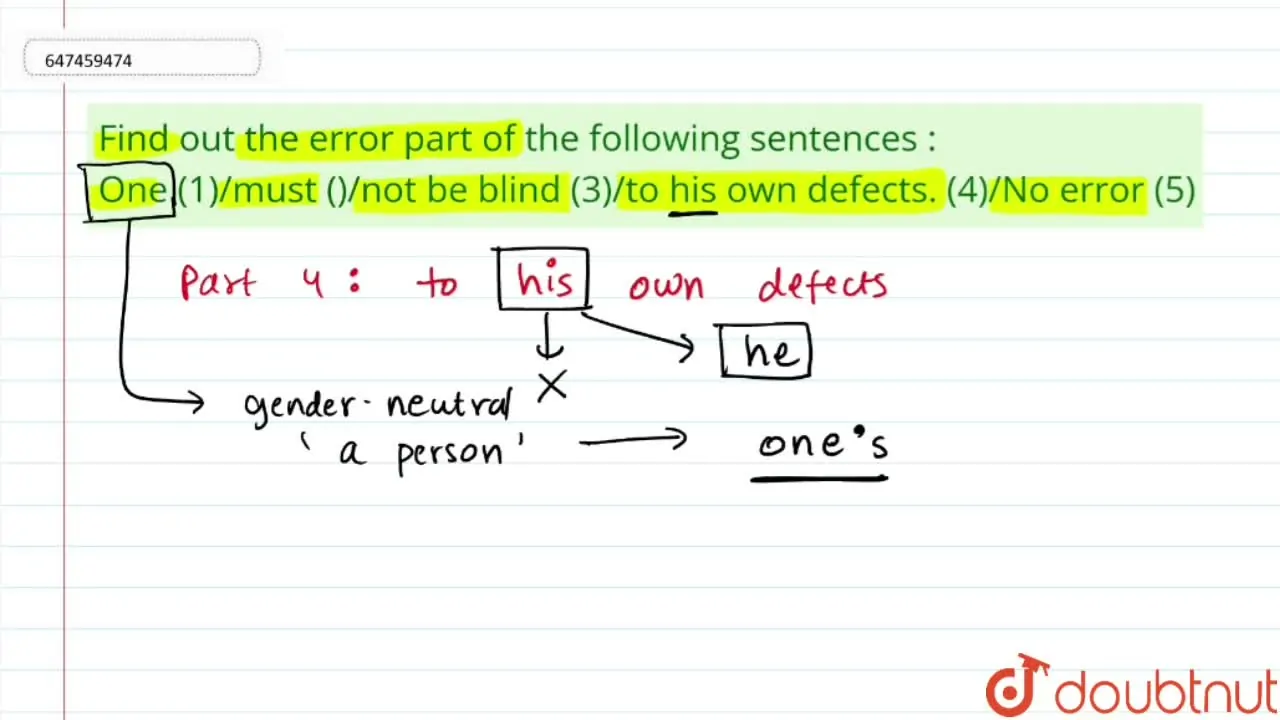 647459474
Find out the error part of the following sentences :
One (1)/must ()/not be blind (3)/to his own defects. (4)/No error (5)
Part 4 : to his own defects
he
×
gender-neutral
'a person'
one's
doubtnut